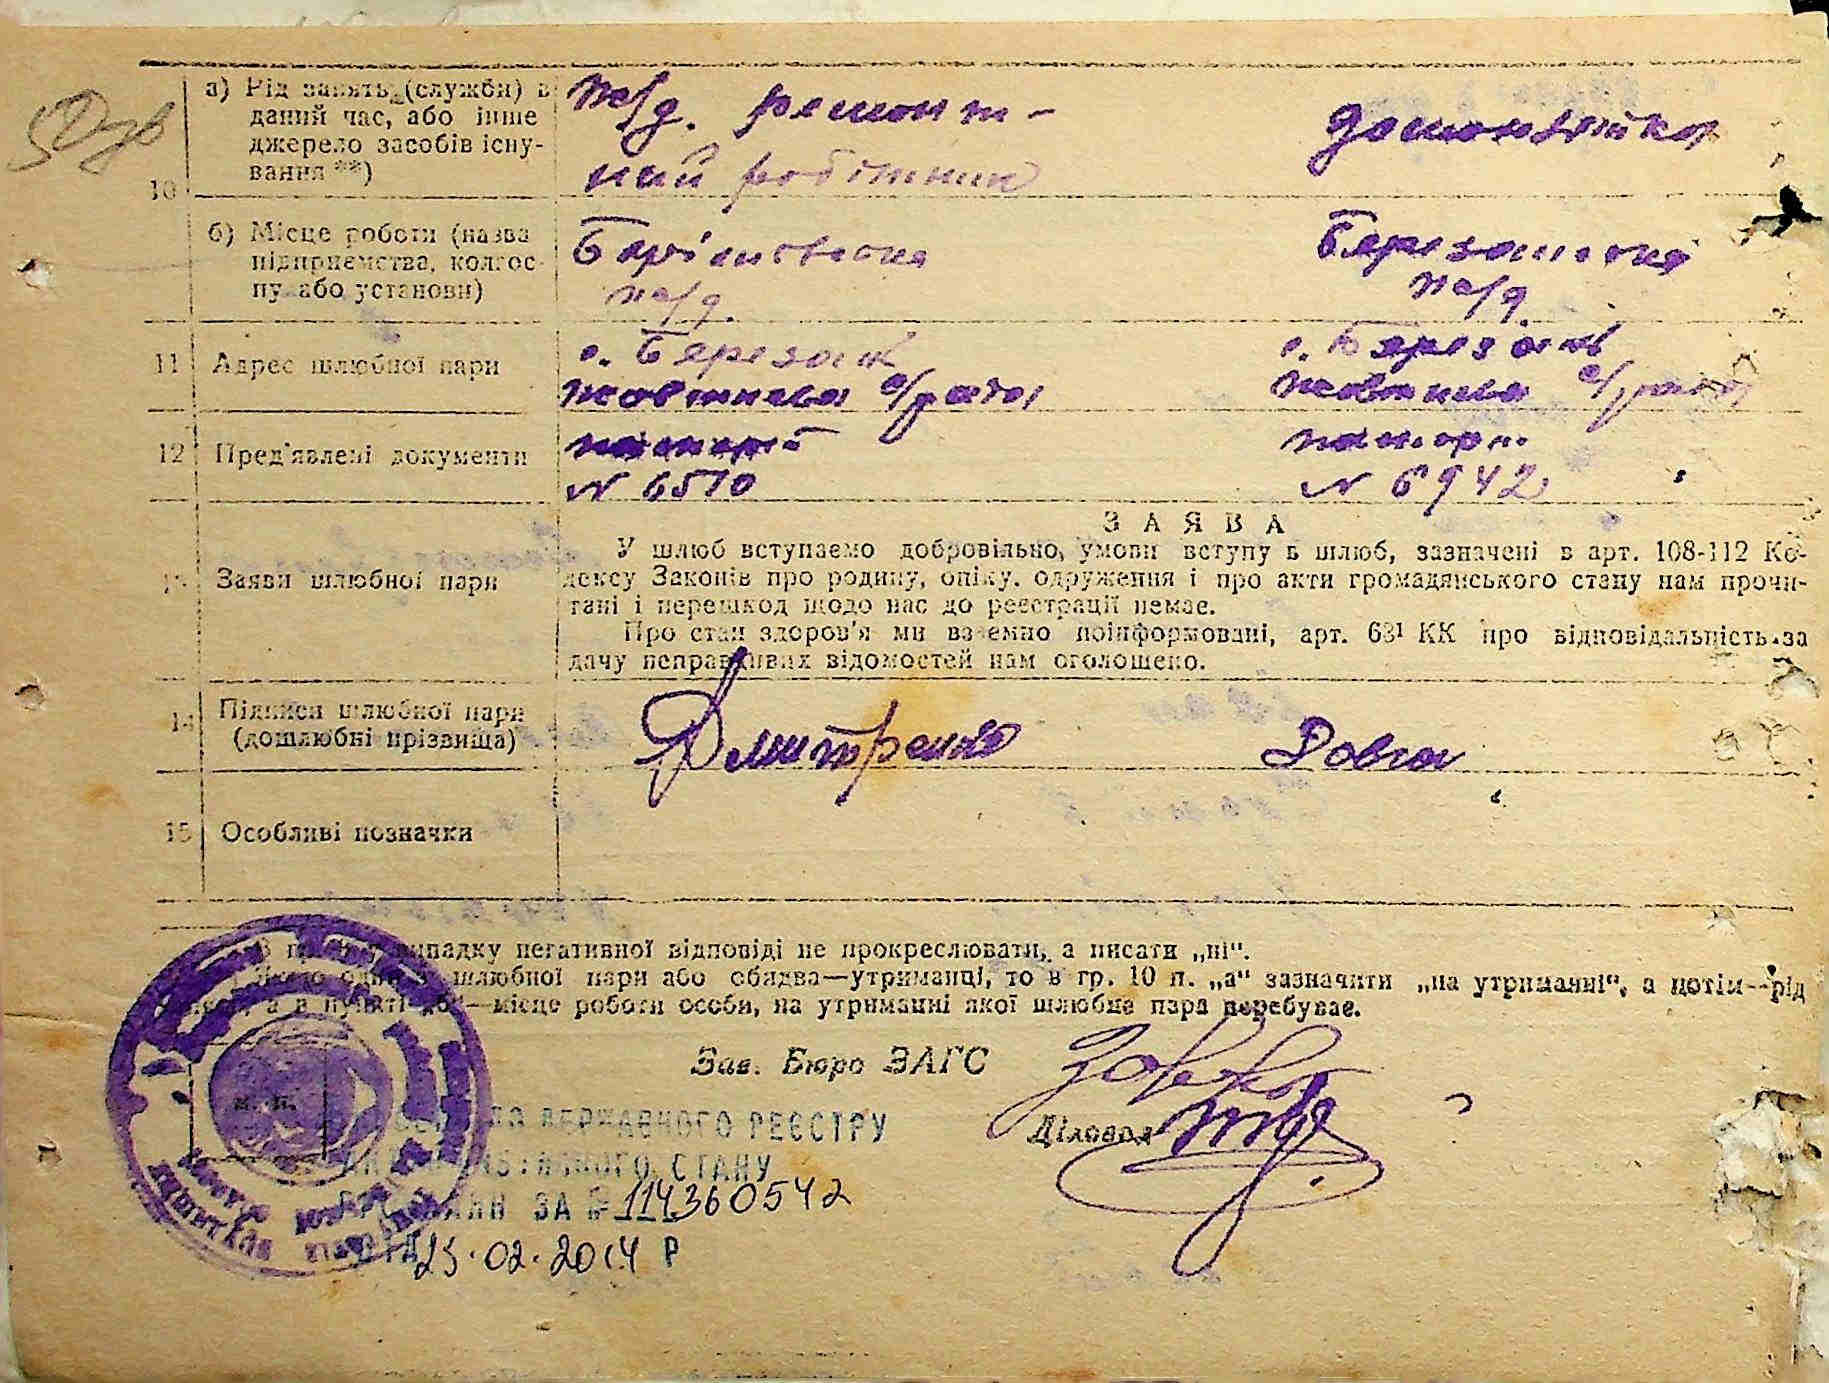 а) Рід занять (служби) в
даний час, або інше
джерело засобів існу-
вання **)
10
ж/д. ремонт-
ний робітник
домохазяйка
б) Місце роботи (назва
підприємства, колгос-
пу або установи)
ж/д.
ж/д.
11 Адрес шлюбної пари
с. Березань
Жовтнева с/рада
с. Березань
Жовтнева с/рада
12 Пред'явлені документи
паспорт
N 6510
паспорт
N 6942
З А Я В А
13 Заяви шлюбної пари
У шлюб вступаємо добровільно, умови вступу в шлюб, зазначені в арт. 108-112 Ко-
дексу Законів про родину, опіку, одруження і про акти громадянського стану нам прочи-
тані і перешкод щодо нас до реєстрації немає.
Про стан здоров'я ми взаємно поінформовані, арт. 63¹ КК про відповідальність за
дачу неправдивих відомостей нам оголошено.
14 Підписи шлюбної пари
(дошлюбні прізвища)
Дмитренко
Довга
15 Особливі позначки
випадку негативної відповіді не прокреслювати, а писати „ні“.
шлюбної пари або обидва—утриманці, то в гр. 10 п. „а“ зазначити „на утриманні“, а потім—рід
а в пункті —місце роботи особи, на утриманні якої шлюбна пара перебуває.
Зав. Бюро ЗАГС
м. п.
Діловод
ДО ДЕРЖАВНОГО РЕЄСТРУ
СТАНУ
ЗА № 114360542
ВІД 25.02.2014 Р